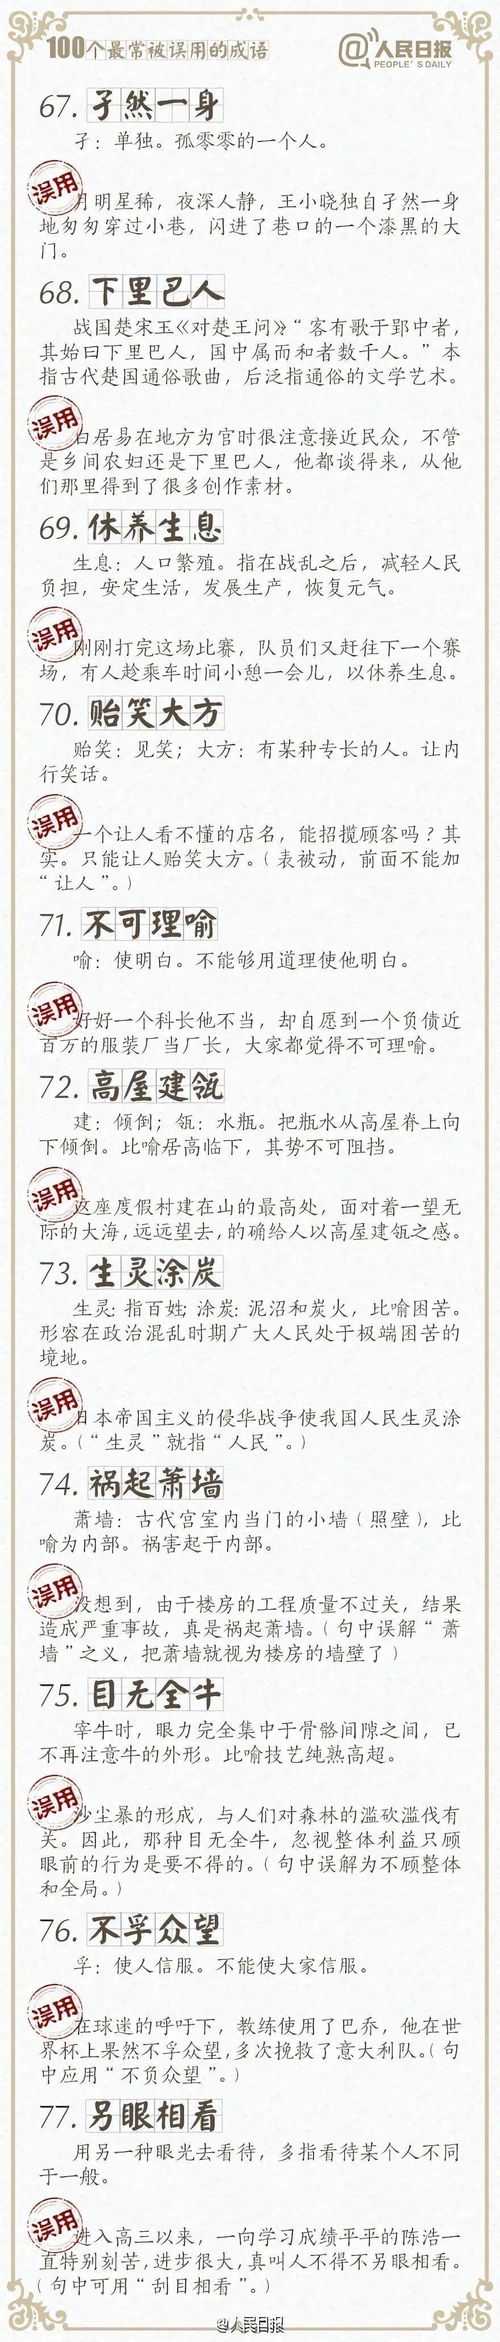 100个最常被误用的成语
@人民日报
PEOPLE'S DAILY
67. 孑然一身
孑：单独。孤零零的一个人。
误用
月明星稀，夜深人静，王小晓独自孑然一身
地匆匆穿过小巷，闪进了巷口的一个漆黑的大
门。
68. 下里巴人
战国楚宋玉《对楚王问》“客有歌于郢中者，
其始曰下里巴人，国中属而和者数千人。”本
指古代楚国通俗歌曲，后泛指通俗的文学艺术。
误用
白居易在地方为官时很注意接近民众，不管
是乡间农妇还是下里巴人，他都谈得来，从他
们那里得到了很多创作素材。
69. 休养生息
生息：人口繁殖。指在战乱之后，减轻人民
负担，安定生活，发展生产，恢复元气。
误用
刚刚打完这场比赛，队员们又赶往下一个赛
场，有人趁乘车时间小憩一会儿，以休养生息。
70. 贻笑大方
贻笑：见笑；大方：有某种专长的人。让内
行笑话。
误用
一个让人看不懂的店名，能招揽顾客吗？其
实。只能让人贻笑大方。（表被动，前面不能加
“让人”。）
71. 不可理喻
喻：使明白。不能够用道理使他明白。
误用
好好一个科长他不当，却自愿到一个负债近
百万的服装厂当厂长，大家都觉得不可理喻。
72. 高屋建瓴
建：倾倒；瓴：水瓶。把瓶水从高屋脊上向
下倾倒。比喻居高临下，其势不可阻挡。
误用
这座度假村建在山的最高处，面对着一望无
际的大海，远远望去，的确给人以高屋建瓴之感。
73. 生灵涂炭
生灵：指百姓；涂炭：泥沼和炭火，比喻困苦。
形容在政治混乱时期广大人民处于极端困苦的
境地。
误用
日本帝国主义的侵华战争使我国人民生灵涂
炭。（“生灵”就指“人民”。）
74. 祸起萧墙
萧墙：古代宫室内当门的小墙（照壁），比
喻为内部。祸害起于内部。
误用
没想到，由于楼房的工程质量不过关，结果
造成严重事故，真是祸起萧墙。（句中误解“萧
墙”之义，把萧墙就视为楼房的墙壁了）
75. 目无全牛
宰牛时，眼力完全集中于骨骼间隙之间，已
不再注意牛的外形。比喻技艺纯熟高超。
误用
沙尘暴的形成，与人们对森林的滥砍滥伐有
关。因此，那种目无全牛，忽视整体利益只顾
眼前的行为是要不得的。（句中误解为不顾整体
和全局。）
76. 不孚众望
孚：使人信服。不能使大家信服。
误用
在球迷的呼吁下，教练使用了巴乔，他在世
界杯上果然不孚众望，多次挽救了意大利队。（句
中应用“不负众望”。）
77. 另眼相看
用另一种眼光去看待，多指看待某个人不同
于一般。
误用
进入高三以来，一向学习成绩平平的陈浩一
直特别刻苦，进步很大，真叫人不得不另眼相看。
（句中可用“刮目相看”。）
@人民日报